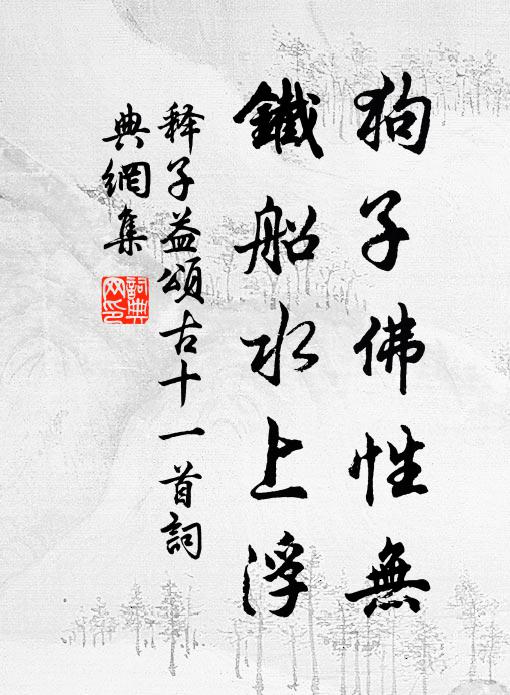 狗子佛性無
鐵船水上浮
釋子益頌古十一首詞
典網集
詞典
网印